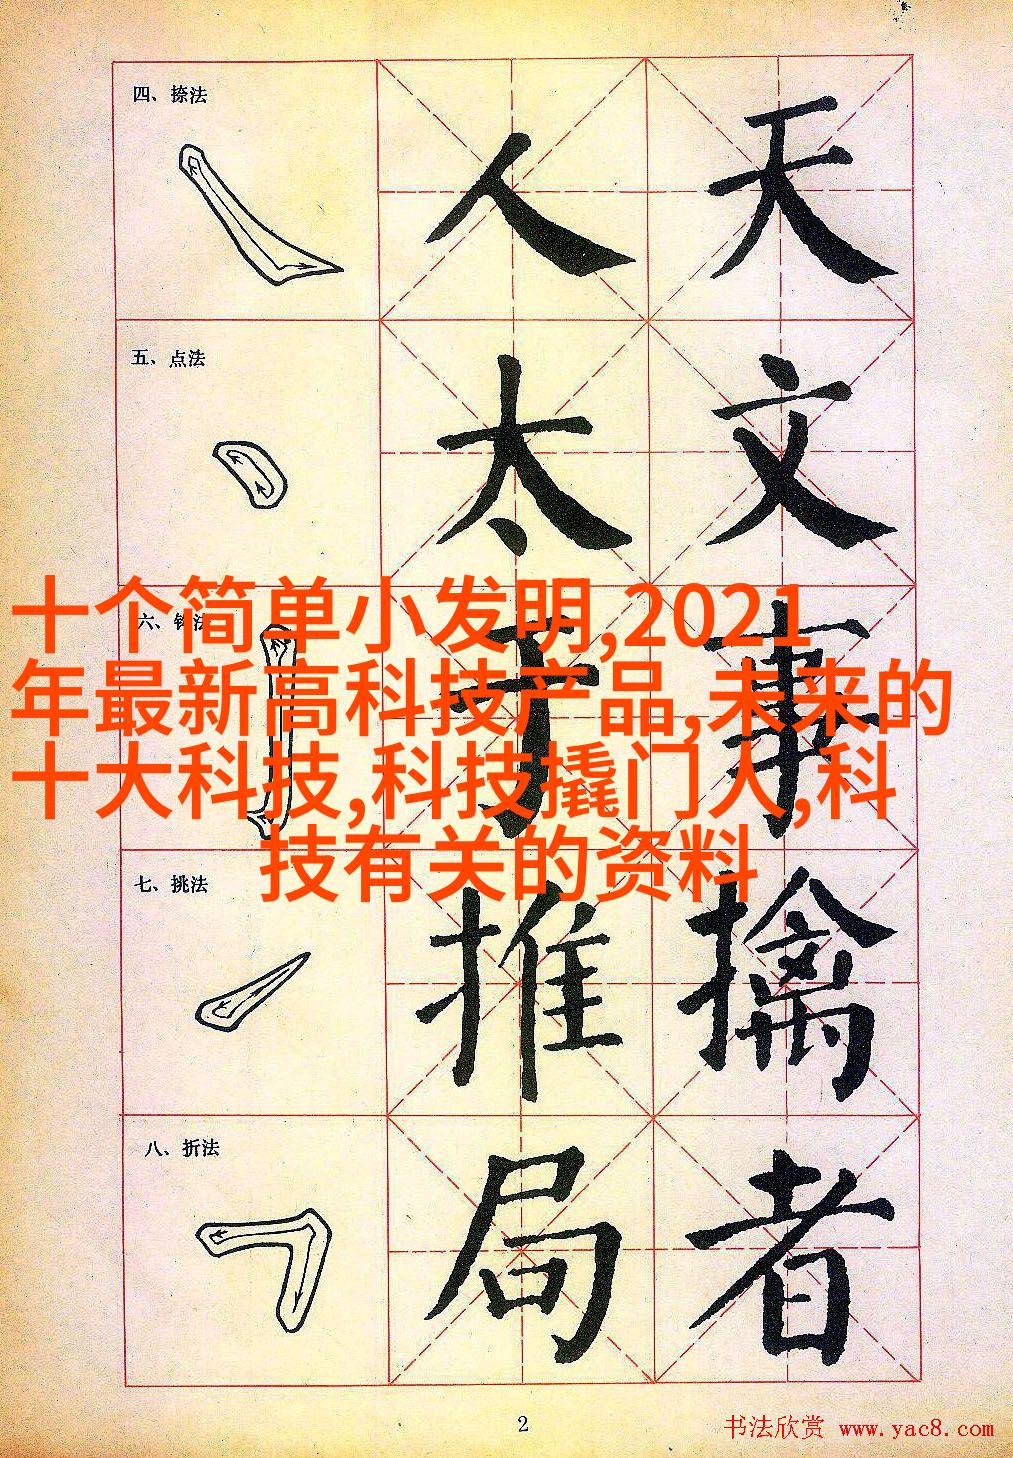 四、捺法
人 天
五、点法
太 文
十个简单小发明,2021
年最新高科技产品,未来的
十大科技,科技撬门人,科
技有关的资料
六、钩法
于 事
七、挑法
推 擒
八、折法
局 者
2
书法欣赏 www.yac8.com